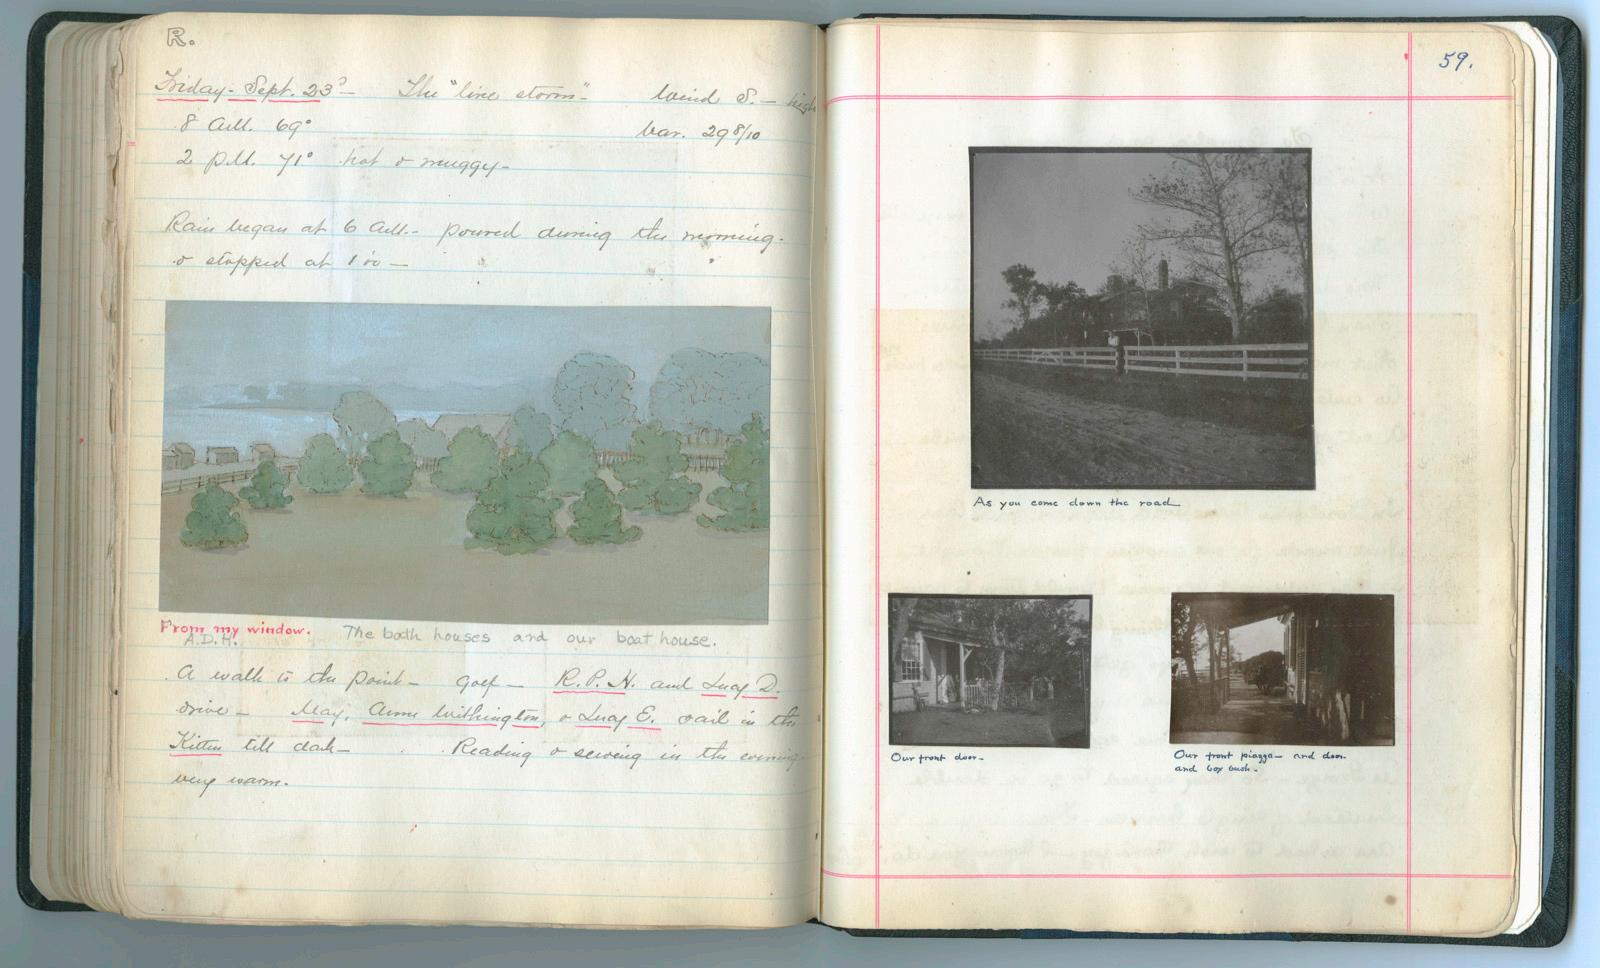 R.
Friday - Sept. 23d - The "line storm" - Wind S. - high
8 A.M. 69° bar. 29 8/10
2 P.M. 71° hot & muggy -
Rain began at 6 A.M. - poured during the morning -
& stopped at 1
From my window. The bath houses and our boat house.
A.D.H.
A walk to the point - golf - R. P. H. and Lucy D.
drive - May, Anne Withington, & Lucy E. sail in the
Kitten till dark - Reading & sewing in the evening -
very warm.
59.
As you come down the road
Our front door -
Our front piazza - and door
and box bush -